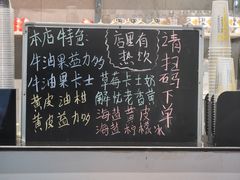 本店特色:
牛油果益力多
牛油果卡士
黄皮油柑
黄皮益力多
店里有
热饮
草莓卡士奶
解忧老香黄
海盐黄皮
海盐柠檬冰
请扫码下单